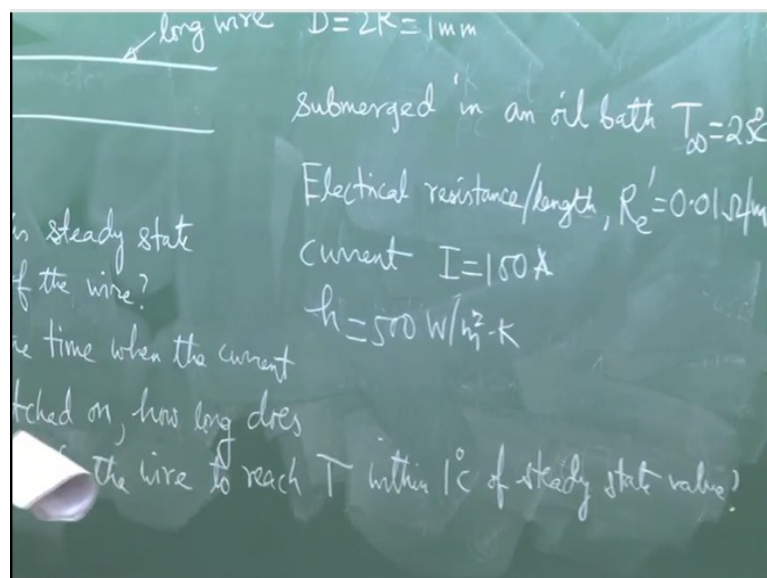 long wire D=2R=1mm
submerged in an oil bath T∞=25°C
Electrical resistance/length, Re'=0.01Ω/m
is steady state
current I=100A
f the wire?
h=500 W/m²-K
e time when the current
tched on, how long does
the wire to reach T within 1°C of steady state value?